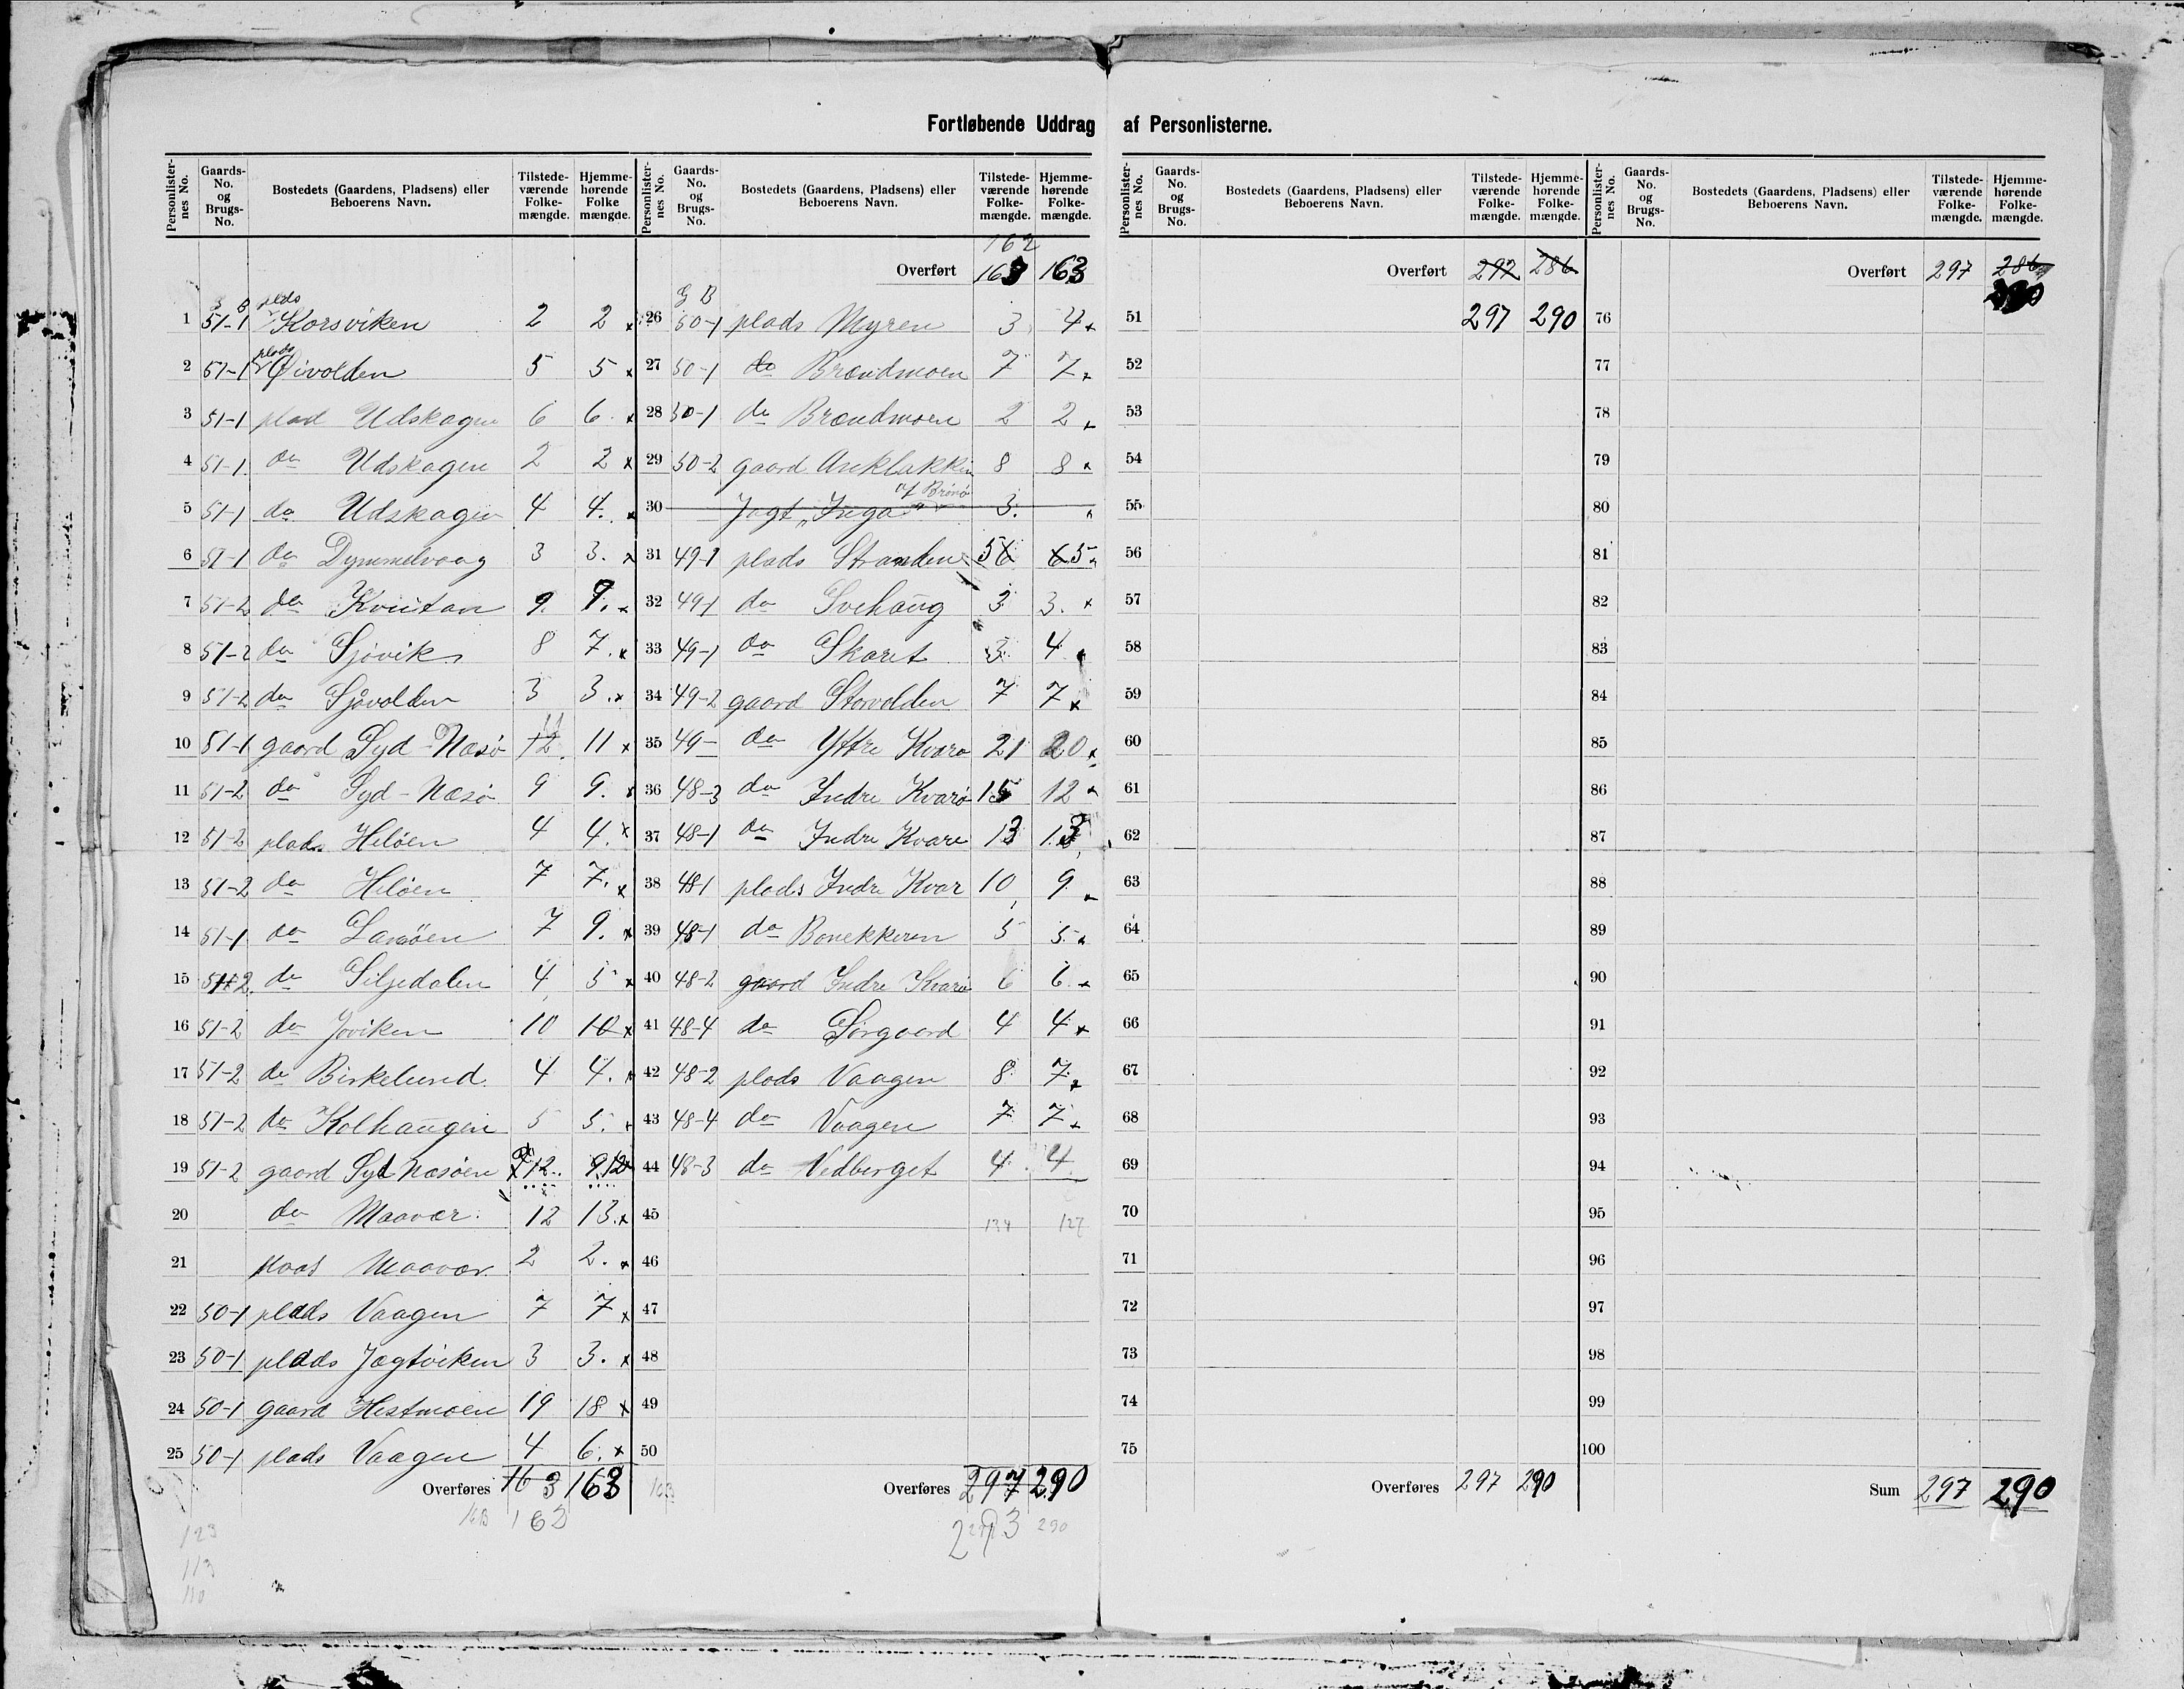 Fortløbende Uddrag af Personlisterne.
Personlisternes No. Gaards-No. og Brugs-No. Bostedets (Gaardens, Pladsens) eller Beboerens Navn. Tilstedeværende Folkemængde. Hjemmehørende Folke mængde.
1 51-1 plds Korsviken 2 2 x
2 51-1 plads Øivolden 5 5 x
3 51-1 plad Udskogen 6 6 x
4 51-1 do Udskogen 2 2 x
5 51-1 do Udskogen 4 4. x
6 51-1 do Dymmelvaag 3 3. x
7 51-2 do Kvintan 9. 9. x
8 51-2 do Sjövik 8 7. x
9 51-2 do Sjövolden 3 3. x
10 51-1 gaard Syd-Næsö 12 11 11 x
11 51-2 do Syd-Næsö 9 9. x
12 51-2 plads Hilöen 4 4. x
13 51-2 do Hilöen 7 7. x
14 51-1 do 7 9. x
15 51-2 do Siljedalen 4 5 x
16 51-2 do Joviken 10 10 x
17 51-2 do Birkelund 4 4. x
18 51-2 do Kolhaugen 5 5. x
19 51-2 gaard Syd Næsöen 12.. 9 12 x
20 do Maavær. 12 13. x
21 plads Maavær. 2 2. x
22 50-1 plads Vaagen 7 7 x
23 50-1 plads Jægtviken 3 3. x
24 50-1 gaard Hestmoen 19 18 x
25 50-1 plads Vaagen 4 6. x
Overføres 163 163
163 162
123
113
110
Personlisternes No. Gaards-No. og Brugs-No. Bostedets (Gaardens, Pladsens) eller Beboerens Navn. Tilstedeværende Folkemængde. Hjemmehørende Folkemængde.
162
Overført 163 163
G B
26 50-1 plads Myren 3 4 x
27 50-1 do Brændmoen 7 7 x
28 50-1 do Brændmoen 2 2 x
29 50-2 gaard 8 8 x
30 Jagt "Inga" af Brönö 3.
31 49-1 plads Stranden 5 6 6 5 x
32 49-1 do Svehaug 3 3. x
33 49-1 do Skaret 3 4
34 49-2 gaard Storvolden 7 7 x
35 49- do Yttre Kvarø 21 20 x
36 48-3 do Indre Kvarö 15 12 x
37 48-1 do Indre Kvarø 13 13
38 48-1 plads Indre Kvar 10 9 x
39 48-1 do Bonekkeren 5 5 x
40 48-2 gaard Indre Kvarö 6 6 x
41 48-4 do Sörgaard 4 4 x
42 48-2 plads Vaagen 8 7 x
43 48-4 do Vaagen 7 7 x
44 48-3 do Vedberget 4 4
45 134 127
46
47
48
49
50
Overføres 297 290
293 290
Personlisternes No. Gaards-No. og Brugs-No. Bostedets (Gaardens, Pladsens) eller Beboerens Navn. Tilstedeværende Folkemængde. Hjemmehørende Folke-mængde.
Overført 292 286
51 297 290
52
53
54
55
56
57
58
59
60
61
62
63
64
65
66
67
68
69
70
71
72
73
74
75
Overføres 297 290
Personlisternes No. Gaards-No. og Brugs-No. Bostedets (Gaardens, Pladsens) eller Beboerens Navn. Tilstedeværende Folkemængde. Hjemmehørende Folke-mængde.
Overført 297 286
76
77
78
79
80
81
82
83
84
85
86
87
88
89
90
91
92
93
94
95
96
97
98
99
100
Sum 297 290